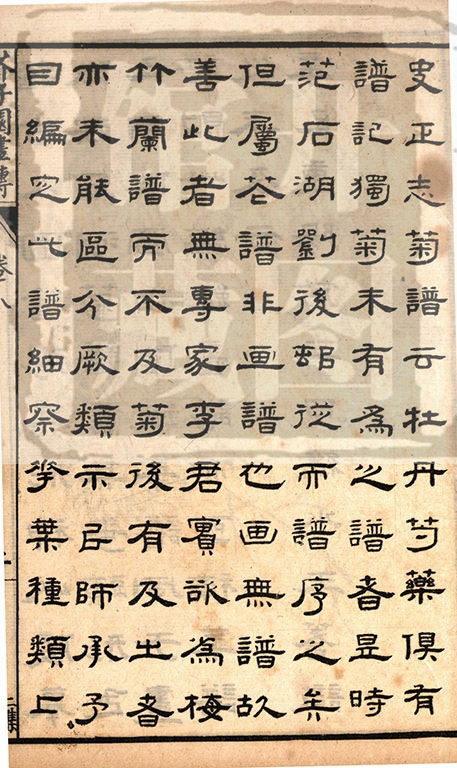 史正志菊譜云牡丹芍藥俱有
譜記獨菊未有為之譜者昰時
范石湖劉後邨從而譜序之矣
但屬花譜非画譜也画無譜故
善此者無專家李君賓詠為梅
竹蘭譜而不及菊後有及之者
亦未能區分厥類示㠯師承予
囙編定此譜細察花葉種類上
芥子園畫傳
卷八